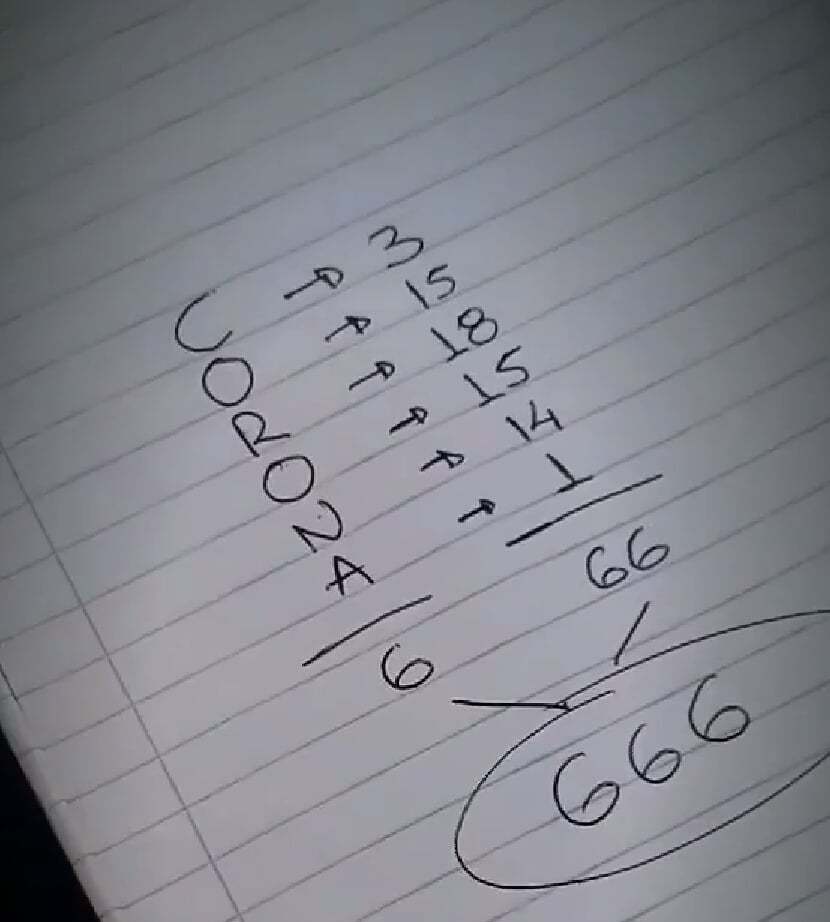 C → 3
O → 15
R → 18
O → 15
N → 14
A → 1
6 66
666